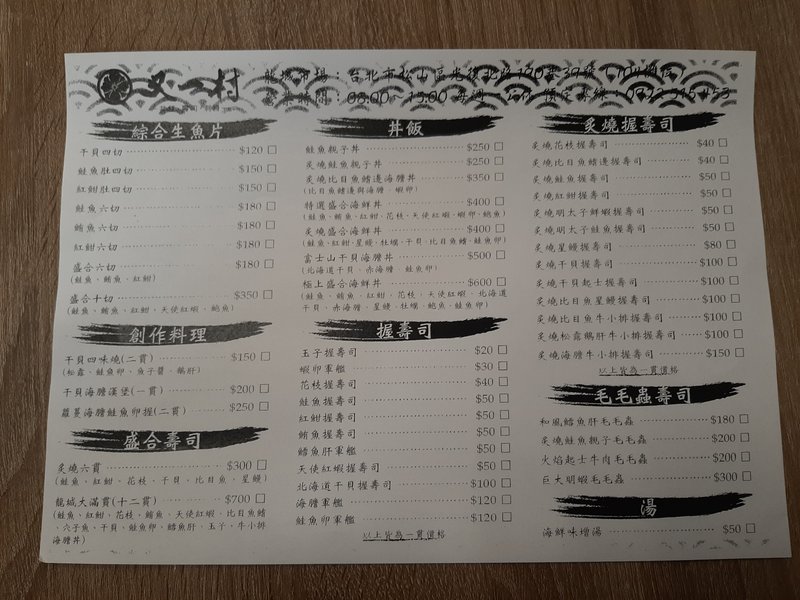 又一村
龍城市場：台北市松山區
營業時間：08:00
綜合生魚片
干貝四切 $120 □
鮭魚肚四切 $150 □
紅魽肚四切 $150 □
鮭魚六切 $180 □
鮪魚六切 $180 □
紅魽六切 $180 □
盛合六切 $180 □
(鮭魚、鮪魚、紅魽)
盛合十切 $350 □
(鮭魚、鮪魚、紅魽、天使紅蝦、鮑魚)
創作料理
干貝四味燒(二貫) $150 □
(松露、鮭魚卵、魚子醬、鵝肝)
干貝海膽漢堡(一貫) $200 □
蘿蔓海膽鮭魚卵握(二貫) $250 □
盛合壽司
炙燒六貫 $300 □
(鮭魚、紅魽、花枝、干貝、比目魚、星鰻)
龍城大滿貫(十二貫) $700 □
(鮭魚、紅魽、花枝、鮪魚、天使紅蝦、比目魚鰭
、穴子魚、干貝、鮭魚卵、鱈魚肝、玉子、牛小排
海膽丼)
丼飯
鮭魚親子丼 $250 □
炙燒鮭魚親子丼 $250 □
炙燒比目魚鰭邊海膽丼 $350 □
(比目魚鰭邊與海膽、蝦卵)
特選盛合海鮮丼 $400 □
(鮭魚、鮪魚、紅魽、花枝、天使紅蝦、蝦卵、鮑魚)
炙燒盛合海鮮丼 $400 □
(鮭魚、紅魽、星鰻、牡蠣、干貝、比目魚鰭、鮭魚卵)
富士山干貝海膽丼 $500 □
(北海道干貝、赤海膽、鮭魚卵)
極上盛合海鮮丼 $600 □
(鮭魚、鮪魚、紅魽、花枝、天使紅蝦、北海道
干貝、赤海膽、星鰻、牡蠣、鮑魚、鮭魚卵)
握壽司
玉子握壽司 $20 □
蝦卵軍艦 $30 □
花枝握壽司 $40 □
鮭魚握壽司 $50 □
紅魽握壽司 $50 □
鮪魚握壽司 $50 □
鱈魚肝軍艦 $50 □
天使紅蝦握壽司 $50 □
北海道干貝握壽司 $100 □
海膽軍艦 $120 □
鮭魚卵軍艦 $120 □
以上皆為一貫價格
炙燒握壽司
炙燒花枝握壽司 $40 □
炙燒比目魚鰭邊握壽司 $40 □
炙燒鮭魚握壽司 $50 □
炙燒紅魽握壽司 $50 □
炙燒明太子鮮蝦握壽司 $50 □
炙燒明太子鮭魚握壽司 $50 □
炙燒星鰻握壽司 $80 □
炙燒干貝握壽司 $100 □
炙燒干貝起士握壽司 $100 □
炙燒比目魚星鰻握壽司 $100 □
炙燒比目魚牛小排握壽司 $100 □
炙燒松露鵝肝牛小排握壽司 $100 □
炙燒海膽牛小排握壽司 $150 □
以上皆為一貫價格
毛毛蟲壽司
和風鱈魚肝毛毛蟲 $180 □
炙燒鮭魚親子毛毛蟲 $200 □
火焰起士牛肉毛毛蟲 $200 □
巨大明蝦毛毛蟲 $300 □
湯
海鮮味增湯 $50 □